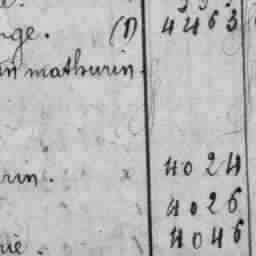 nge. (1) 4463
in mathurin.
rin. x 4024
4026
rie. 4046